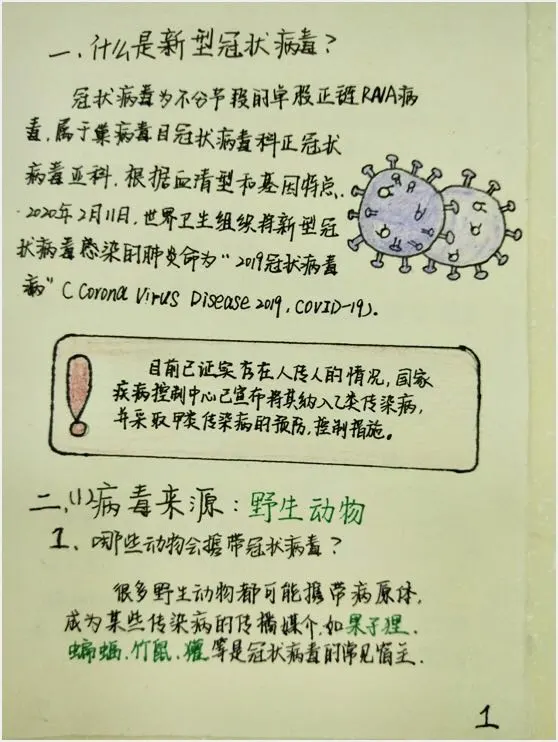 一、什么是新型冠状病毒？
冠状病毒为不分节段的单股正链RNA病
毒，属于巢病毒目冠状病毒科正冠状
病毒亚科，根据血清型和基因特点、
2020年2月11日，世界卫生组织将新型冠
状病毒感染的肺炎命为“2019冠状病毒
病”（Corona Virus Disease 2019，COVID-19）．
目前已证实存在人传人的情况，国家
疾病控制中心已宣布将其纳入乙类传染病，
并采取甲类传染病的预防，控制措施。
二、(1)病毒来源：野生动物
1、哪些动物会携带冠状病毒？
很多野生动物都可能携带病原体，
成为某些传染病的传播媒介，如果子狸、
蝙蝠、竹鼠、獾等是冠状病毒的常见宿主．
1